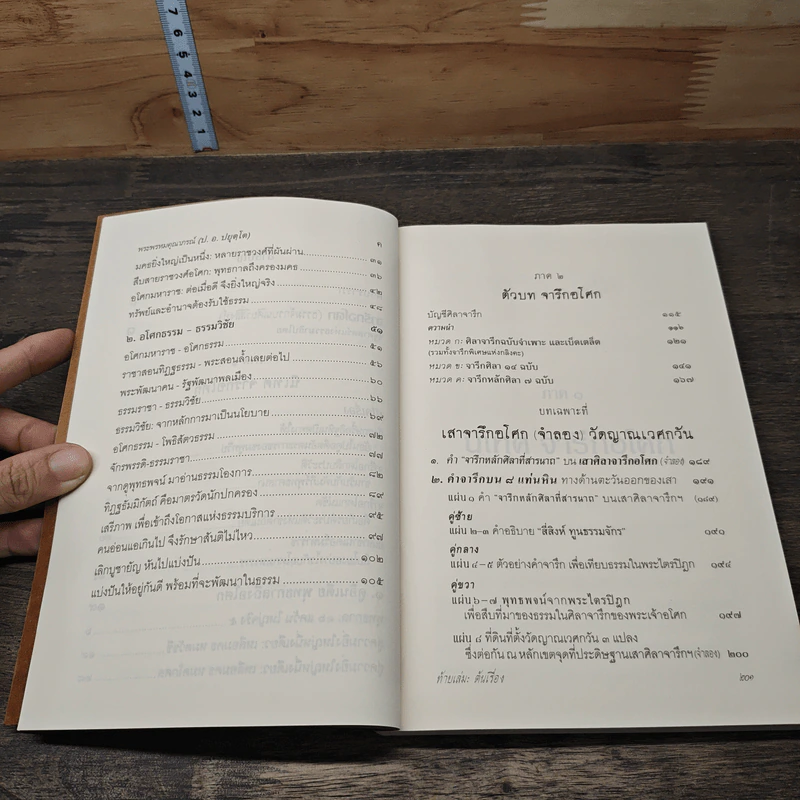 7
6
5
4
3
2
1
พระพรหมคุณาภรณ์ (ป. อ. ปยุตฺโต) ค
มคธยิ่งใหญ่เป็นหนึ่ง: หลายราชวงศ์ที่ผันผ่าน ๓๑
สืบสายราชวงศ์อโศก: พุทธกาลถึงครองมคธ ๓๖
อโศกมหาราช: ต่อเมื่อดี จึงยิ่งใหญ่จริง ๔๒
ทรัพย์และอำนาจต้องรับใช้ธรรม ๔๘
๒. อโศกธรรม – ธรรมวิชัย ๕๑
อโศกมหาราช - อโศกธรรม ๕๑
ราชาสอนทิฏฐธรรม - พระสอนล้ำเลยต่อไป ๕๖
พระพัฒนาคน - รัฐพัฒนาพลเมือง ๖๐
ธรรมราชา - ธรรมวิชัย ๖๒
ธรรมวิชัย: จากหลักการมาเป็นนโยบาย ๖๙
อโศกธรรม - โพธิสัตวธรรม ๗๒
จักรพรรดิ-ธรรมราชา ๗๗
จากดูพุทธพจน์ มาอ่านธรรมโองการ ๘๒
ทิฏฐธัมมิกัตถ์ คือมาตรวัดนักปกครอง ๘๙
เสรีภาพ เพื่อเข้าถึงโอกาสแห่งธรรมบริการ ๙๕
คนอ่อนแอเกินไป จึงรักษาสันติไม่ไหว ๙๗
เลิกบูชายัญ หันไปแบ่งปัน ๑๐๒
แบ่งปันให้อยู่กันดี พร้อมที่จะพัฒนาในธรรม ๑๐๕
ภาค ๒
ตัวบท จารึกอโศก
บัญชีศิลาจารึก ๑๑๕
ความนำ ๑๑๖
หมวด ก: ศิลาจารึกฉบับจำเพาะ และเบ็ดเตล็ด ๑๒๑
(รวมทั้งจารึกพิเศษแห่งกลิงคะ)
หมวด ข: จารึกศิลา ๑๔ ฉบับ ๑๔๑
หมวด ค: จารึกหลักศิลา ๗ ฉบับ ๑๖๗
บทเฉพาะที่
เสาจารึกอโศก (จำลอง) วัดญาณเวศกวัน
๑. คำ "จารึกหลักศิลาที่สารนาถ" บน เสาศิลาจารึกอโศก (จำลอง) ๑๘๙
๒. คำจารึกบน ๘ แท่นหิน ทางด้านตะวันออกของเสา ๑๙๑
แผ่น ๑ คำ "จารึกหลักศิลาที่สารนาถ" บนเสาศิลาจารึกฯ (๑๘๙)
คู่ซ้าย
แผ่น ๒–๓ คำอธิบาย "สี่สิงห์ ทูนธรรมจักร" ๑๙๑
คู่กลาง
แผ่น ๔–๕ ตัวอย่างคำจารึก เพื่อเทียบธรรมในพระไตรปิฎก ๑๙๔
คู่ขวา
แผ่น ๖–๗ พุทธพจน์จากพระไตรปิฎก
เพื่อสืบที่มาของธรรมในศิลาจารึกของพระเจ้าอโศก ๑๙๗
แผ่น ๘ ที่ดินที่ตั้งวัดญาณเวศกวัน ๓ แปลง
ซึ่งต่อกัน ณ หลักเขตจุดที่ประดิษฐานเสาศิลาจารึกฯ(จำลอง) ๒๐๐
ท้ายเล่ม: ต้นเรื่อง ๒๐๑